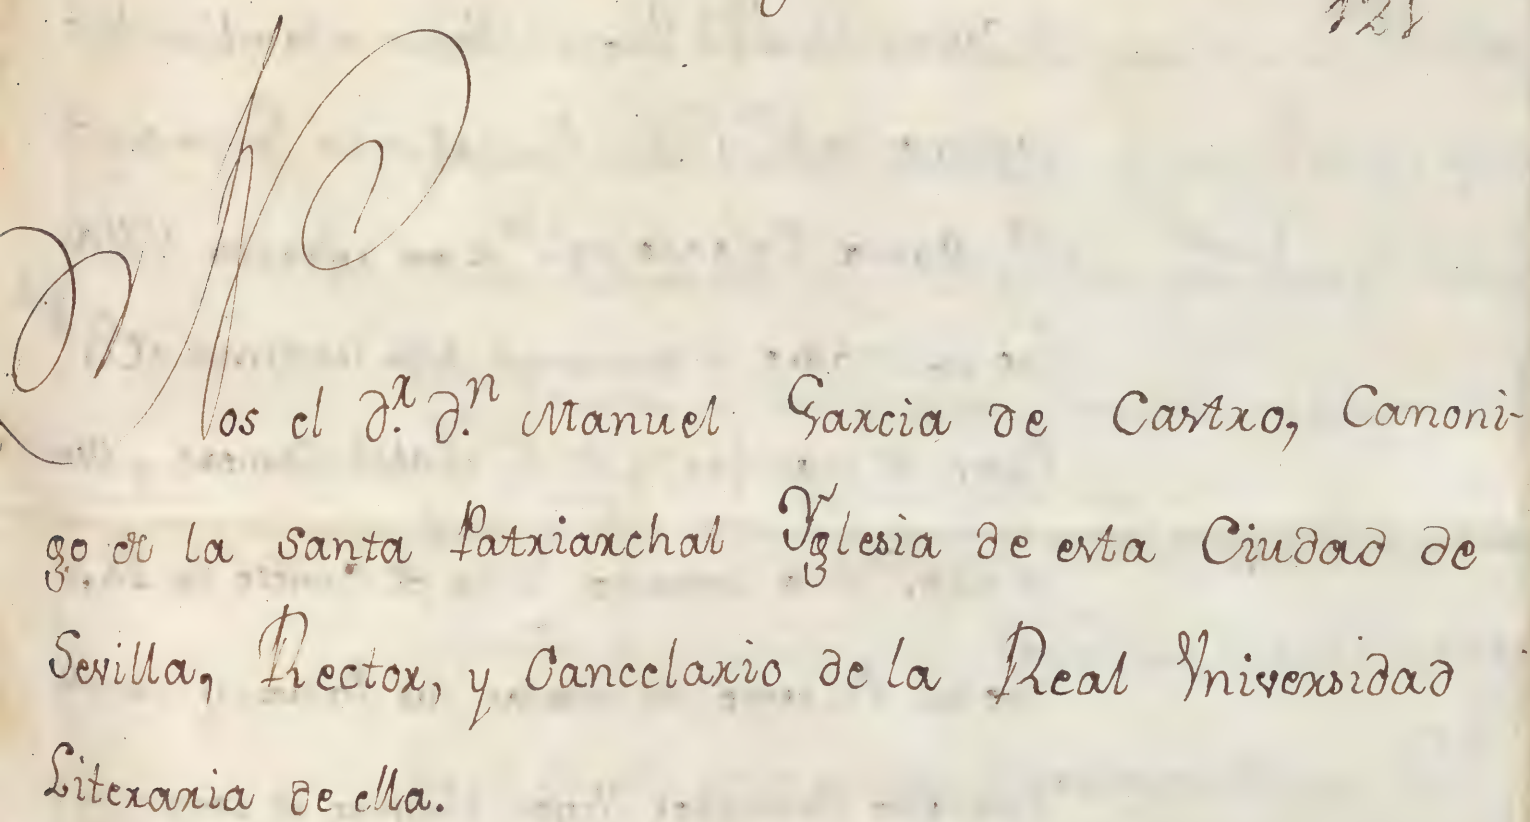 121
Nos el D.r D.n Manuel Garcia de Castro, Canoni-
go de la Santa Patriarchal Yglesia de esta Ciudad de
Sevilla, Rector, y Cancelario de la Real Vniversidad
Literaria de ella.